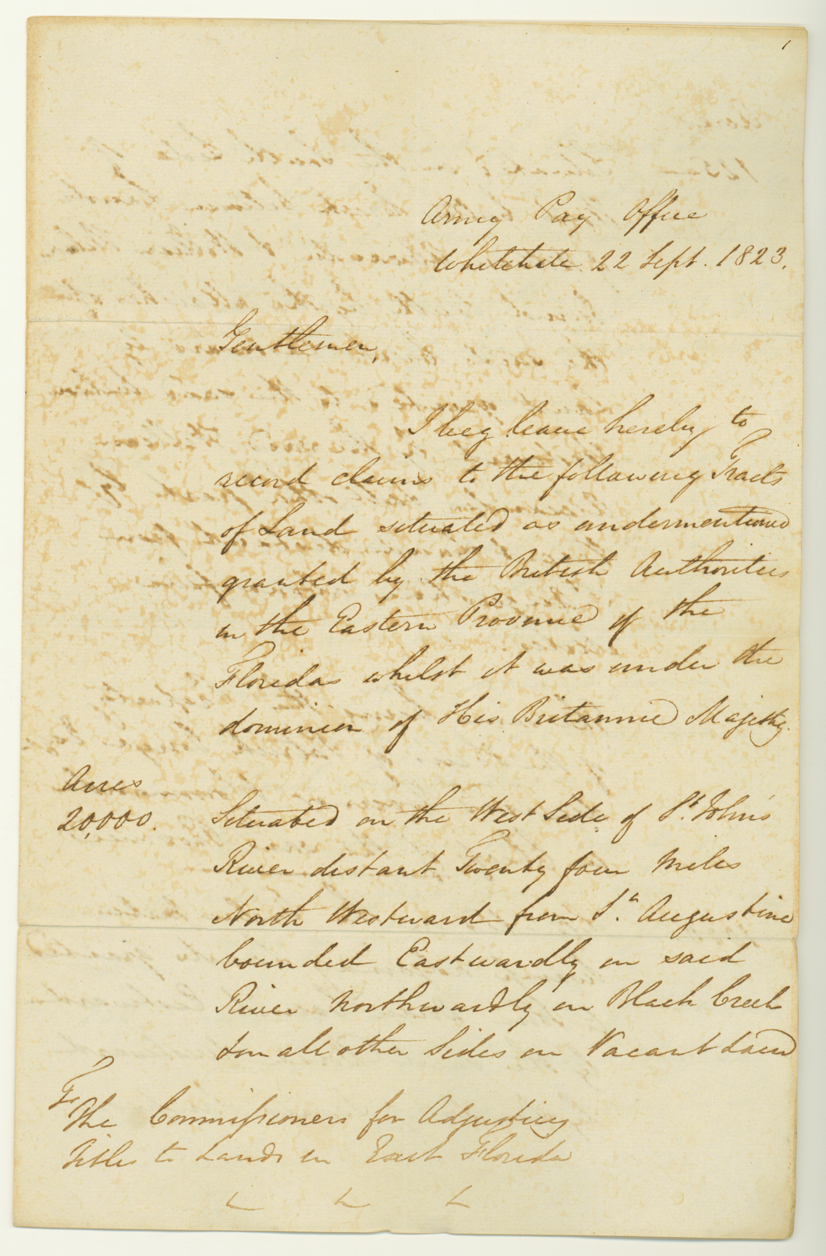 1
Army Pay Office
Whitehall 22 Sept. 1823.
Gentlemen,
I beg leave hereby to
record claims to the following Tracts
of Land situated as undermentioned
granted by the British Authorities
in the Eastern Province of the
Floridas whilst it was under the
dominion of His Britannic Majesty.
Acres
20,000. Situated on the West Side of St. John's
River distant Twenty four Miles
North Westward from St. Augustine
bounded Eastwardly on said
River Northwardly on Black Creek
& on all other Sides on Vacant Land
To
The Commissioners for Adjusting
Titles to Lands in East Florida